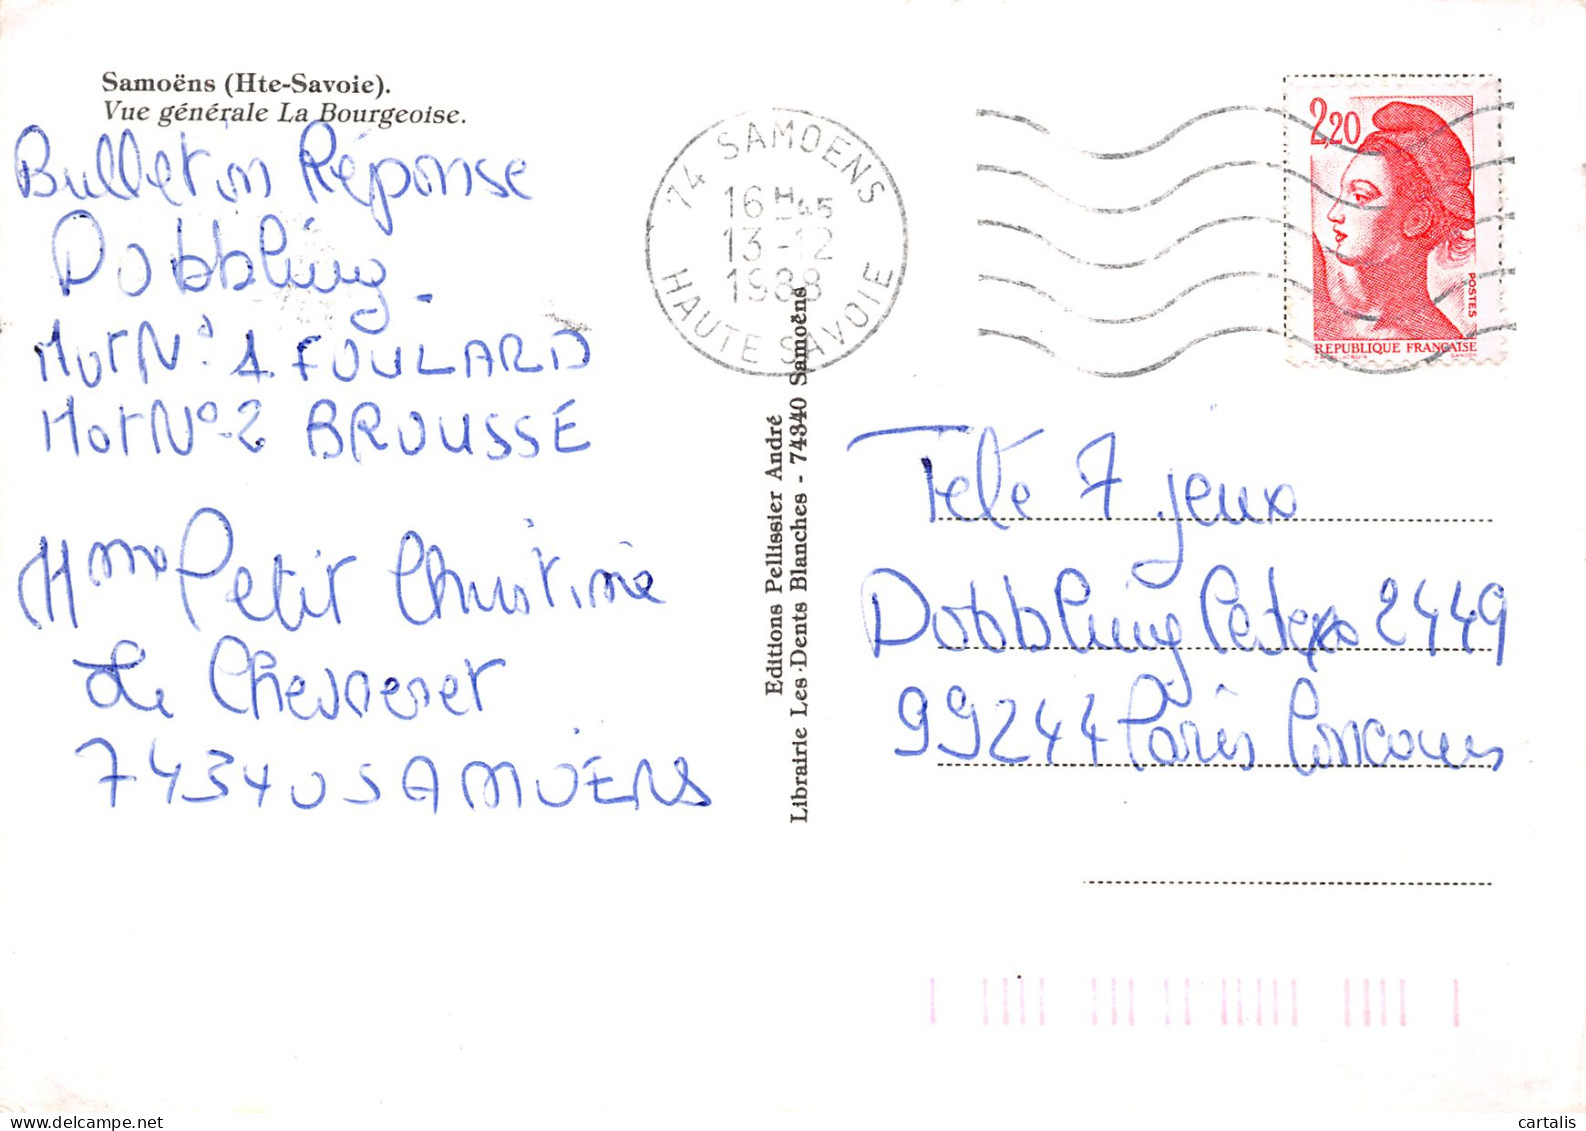 Samoëns (Hte-Savoie).
Vue générale La Bourgeoise.
Bulletin Réponse
Dobbling.
Mot N° 1 FOULARD
Mot N° 2 BROUSSE
Mme Petit Christine
Le
74340 SAMOENS
74 SAMOENS
16H45
13-12
1988
HAUTE SAVOIE
Editions Pellissier André
Librairie Les Dents Blanches - 74340 Samoëns
2,20
POSTES
REPUBLIQUE FRANÇAISE
Télé 7 jeux
Dobbling Cedex 2449
99244 Paris Concours
cartalis